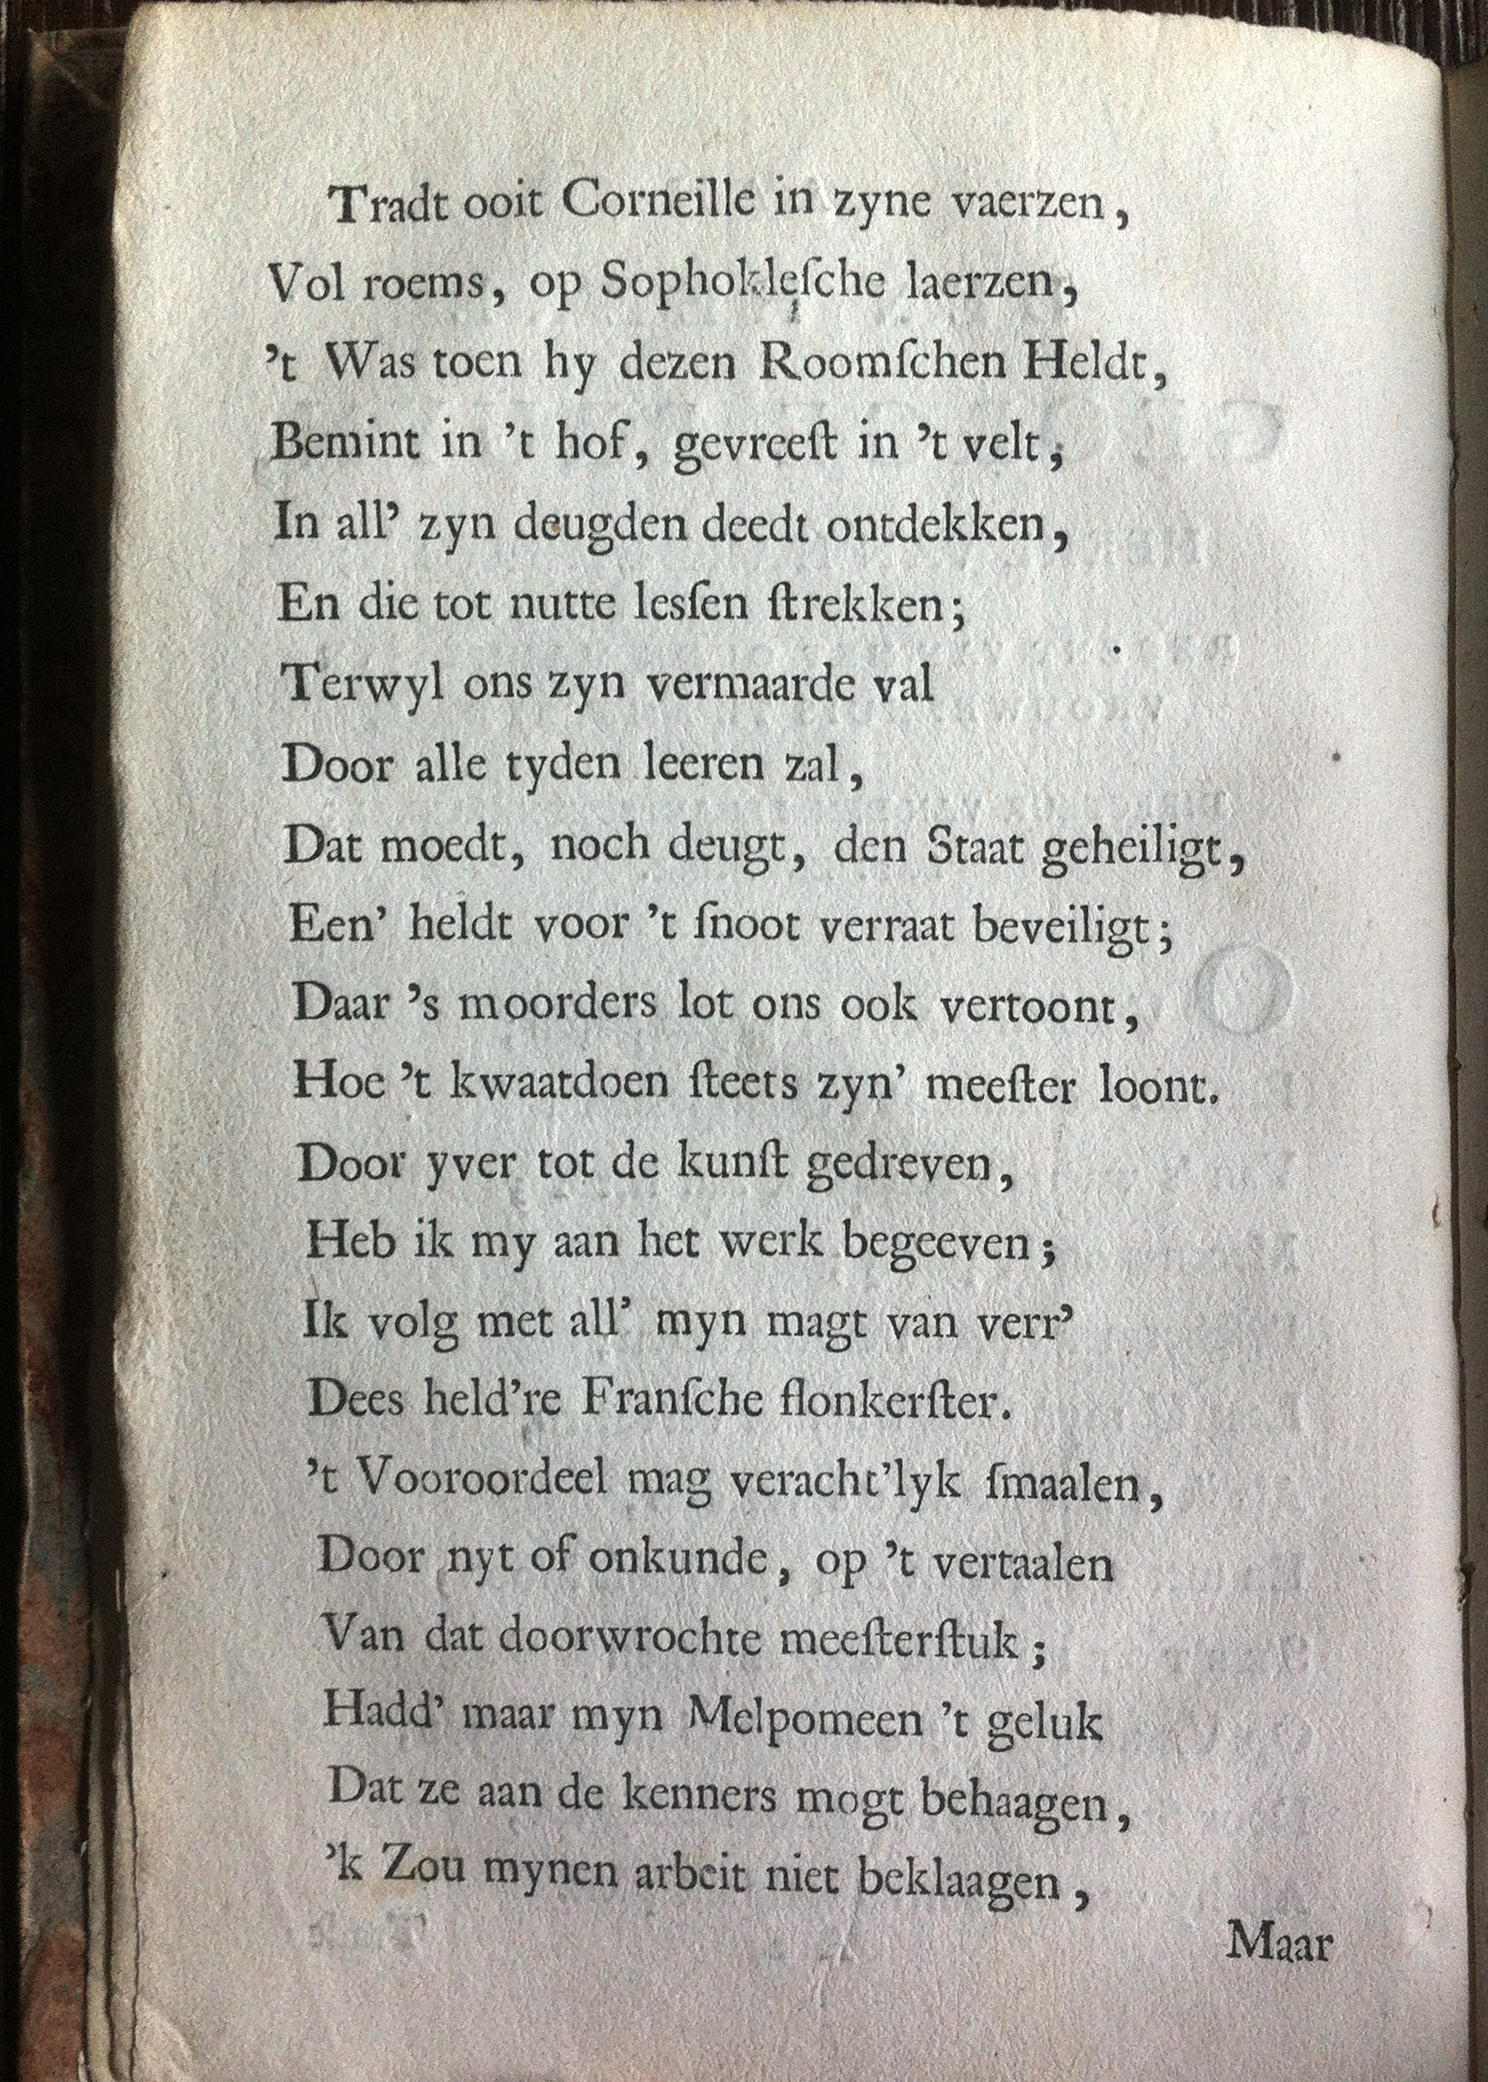 Tradt ooit Corneille in zyne vaerzen,
Vol roems, op Sophokleſche laerzen,
’t Was toen hy dezen Roomſchen Heldt,
Bemint in ’t hof, gevreeſt in ’t velt,
In all’ zyn deugden deedt ontdekken,
En die tot nutte lesſen ſtrekken;
Terwyl ons zyn vermaarde val
Door alle tyden leeren zal,
Dat moedt, noch deugt, den Staat geheiligt,
Een’ heldt voor ’t ſnoot verraat beveiligt;
Daar ’s moorders lot ons ook vertoont,
Hoe ’t kwaatdoen ſteets zyn’ meeſter loont.
Door yver tot de kunſt gedreven,
Heb ik my aan het werk begeeven;
Ik volg met all’ myn magt van verr’
Dees held’re Franſche flonkerſter.
’t Vooroordeel mag veracht’lyk ſmaalen,
Door nyt of onkunde, op ’t vertaalen
Van dat doorwrochte meeſterſtuk;
Hadd’ maar myn Melpomeen ’t geluk
Dat ze aan de kenners mogt behaagen,
’k Zou mynen arbeit niet beklaagen,
Maar